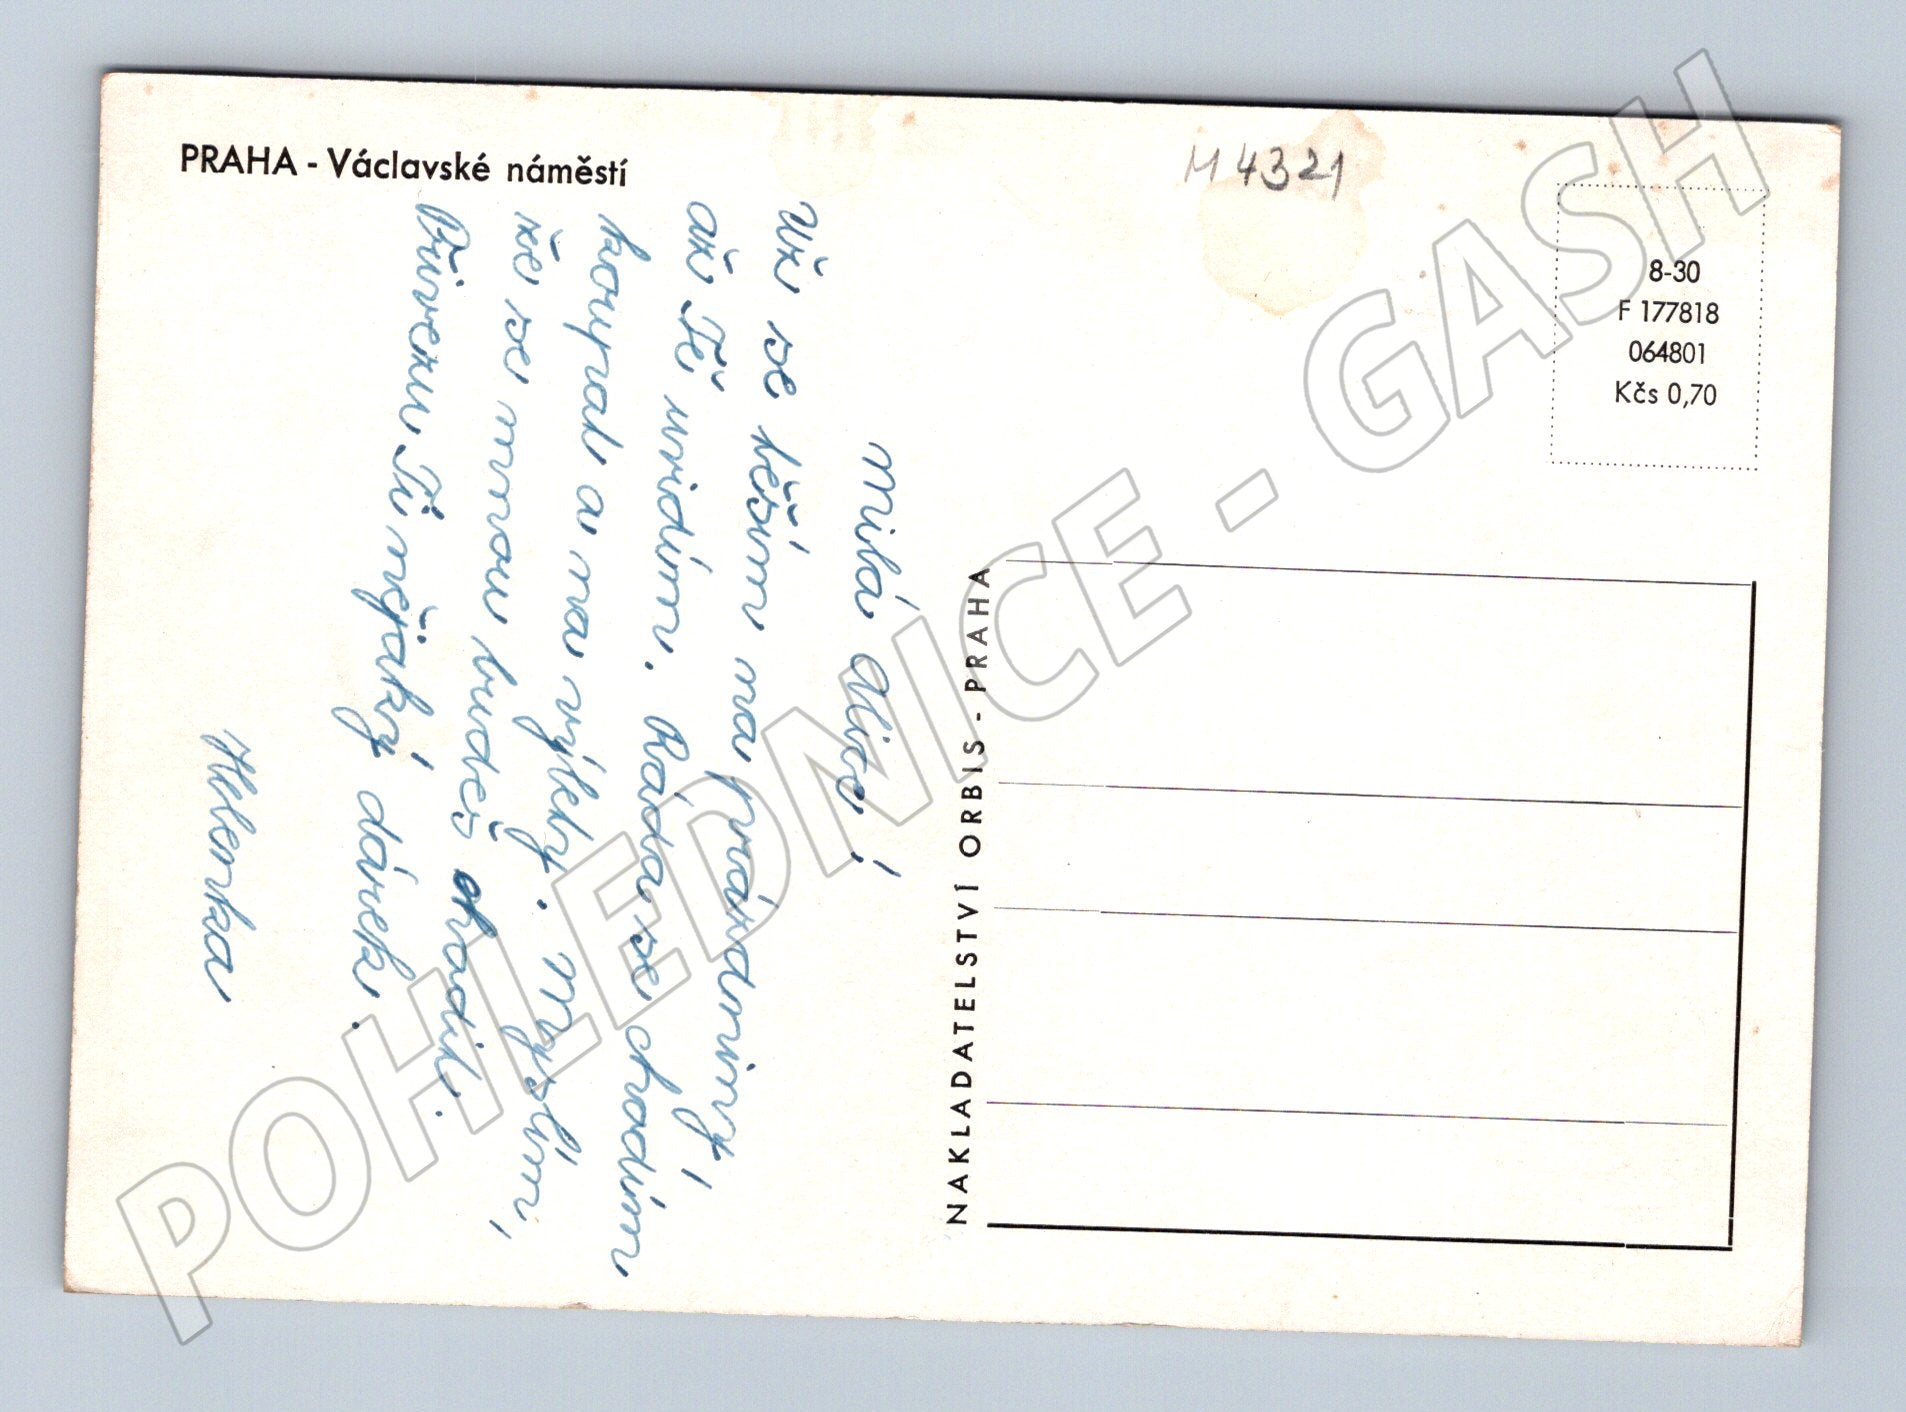 PRAHA - Václavské náměstí
M 4321
8-30
F 177818
064801
Kčs 0,70
Milá Alio!
Už se těším na prázdniny,
až Tě uvidím. Ráda se chodím
koupat a na výlety. Myslím,
že se mnou budeš chodit.
Přivezu Ti nějaký dárek.
Helenka
NAKLADATELSTVÍ ORBIS - PRAHA
POHLEDNICE - GASH